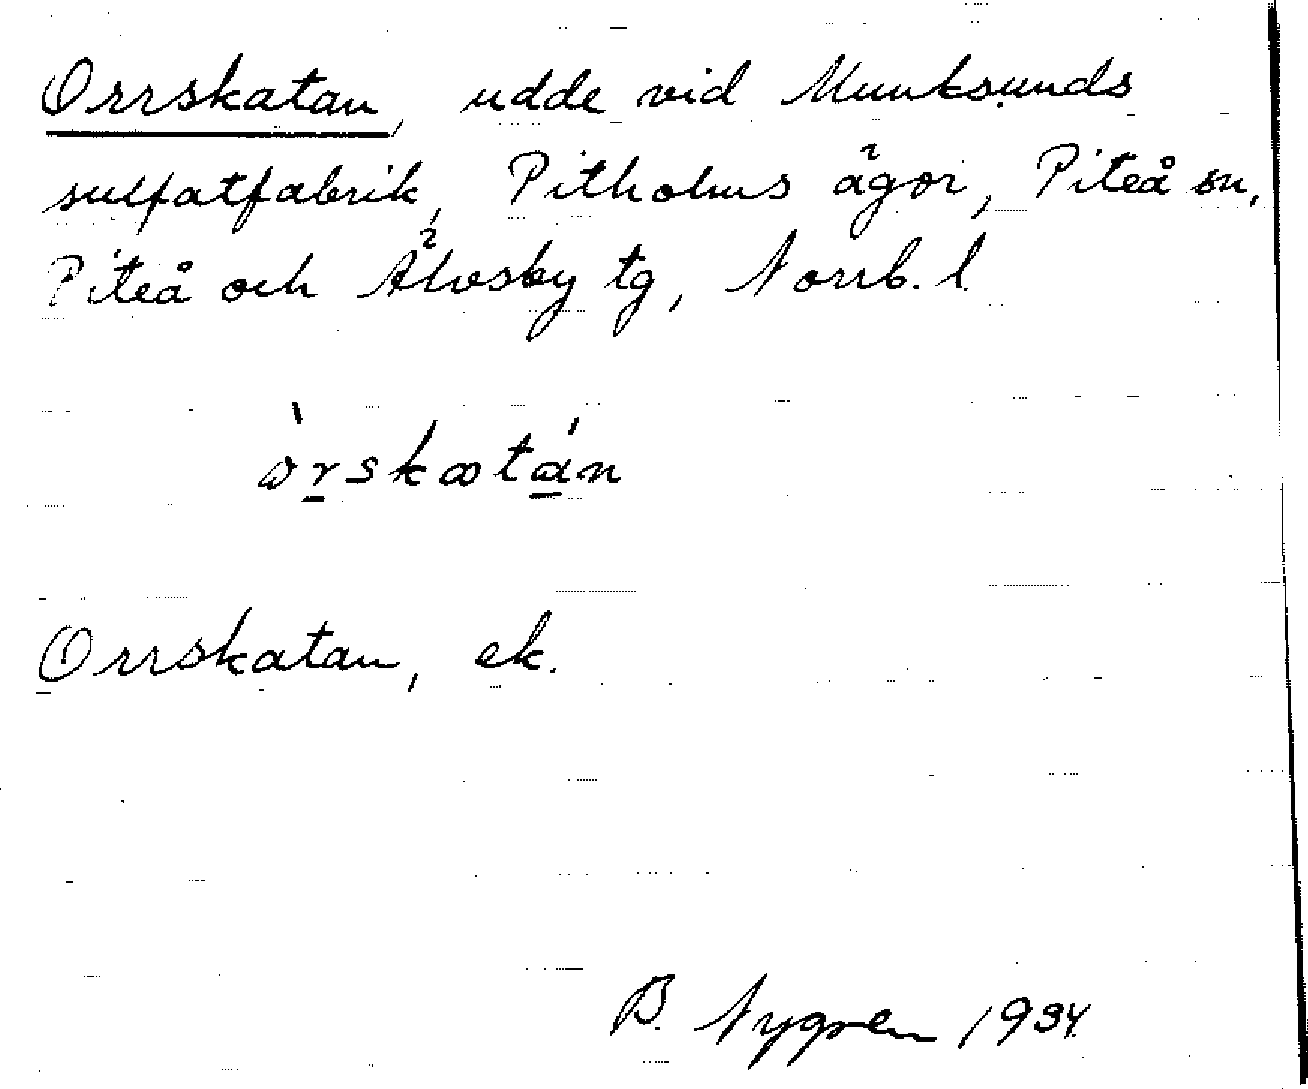 Orrskatan, udde vid Munksunds
sulfatfabrik, Pitholms ägor, Piteå sn,
Piteå och Älvsby tg, Norrb. l.
òrskatán
Orrskatan, ek.
B. Nygren 1934